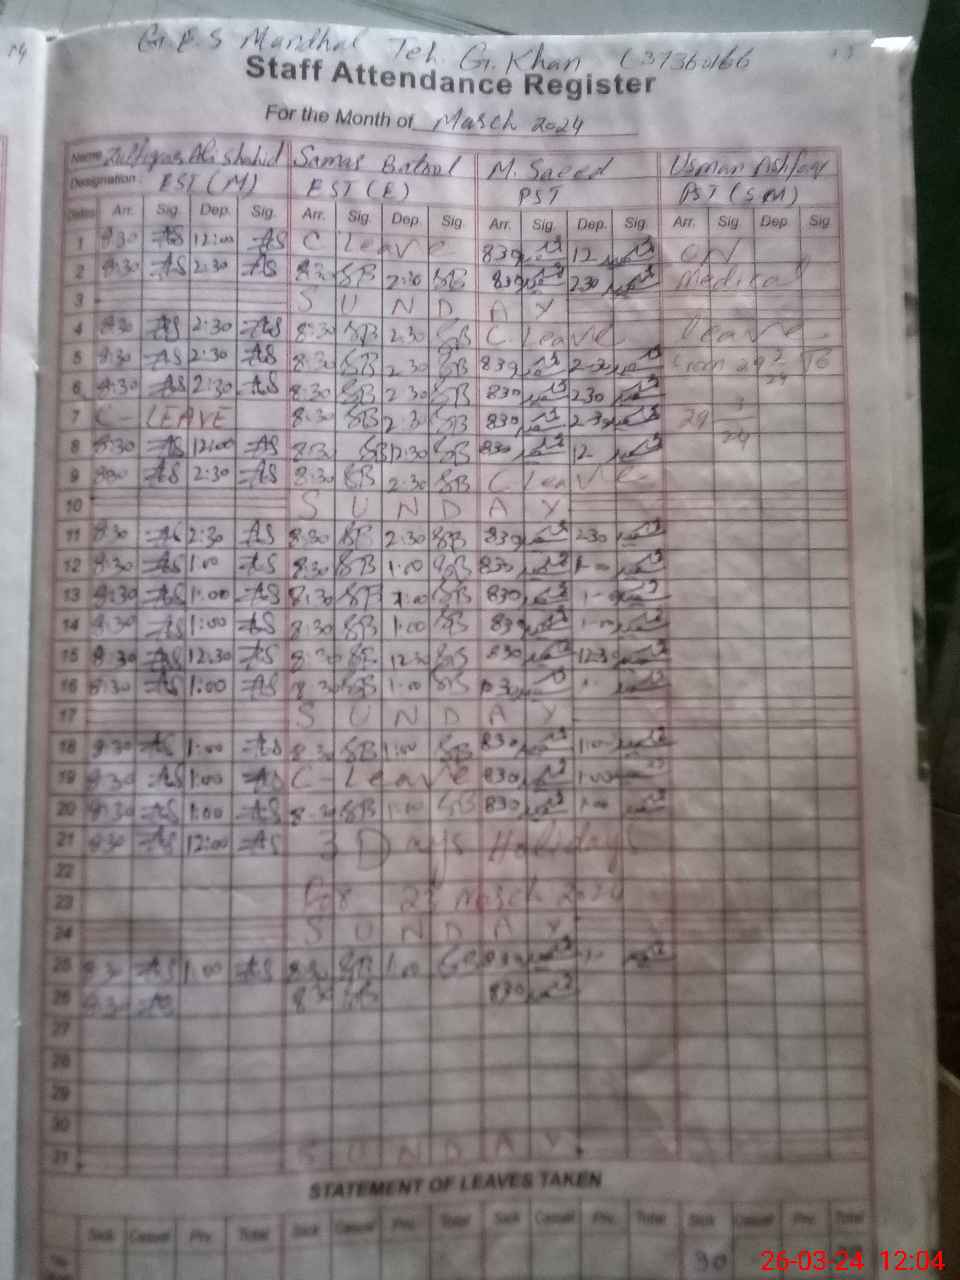 G.E.S Mandhal Teh. G. Khan (37360166
Staff Attendance Register
For the Month of March 2024
Name Zulfiqar Ali Shahid Samar Batool M. Saeed Usman Ashfaq
Designation: EST (M) EST (E) PST PST (SM)
Dates Arr. Sig. Dep. Sig. Arr. Sig. Dep. Sig Arr. Sig. Dep. Sig. Arr. Sig. Dep Sig
1 8:30 AS 12:00 AS C Leave 830 12 ON
2 8:30 AS 2:30 AS 8:30 SB 2:30 SB 830 230 Medical
3 SUNDAY
4 8:30 AS 2:30 AS 8:30 SB 2:30 SB C Leave Leave
5 8:30 AS 2:30 AS 8:30 SB 2:30 SB 830 2-30 From 29 2/24 To
6 8:30 AS 2:30 AS 8:30 SB 2:30 SB 830 230
7 C-LEAVE 8:30 SB 2:30 SB 830 2-30 29 3/24
8 8:30 AS 12:00 AS 8:30 SB 12:30 SB 830 12
9 AS 2:30 AS 8:30 SB 2:30 SB C Leave
10 SUNDAY
11 8:30 AS 2:30 AS 8:30 SB 2:30 SB 830 230
12 8:30 AS 1:00 AS 8:30 SB 1:00 SB 830
13 8:30 AS 1:00 AS 8:30 SB 1:00 SB 830
14 8:30 AS 1:00 AS 8:30 SB 1:00 SB 830 1-00
15 8:30 AS 12:30 AS 8:30 SB 12:30 SB 830 1230
16 8:30 AS 1:00 AS 8:30 SB 1:00 SB
17 SUNDAY
18 8:30 AS 1:00 AS 8:30 SB 1:00 SB 830 1:00
19 8:30 AS 1:00 AS C-Leave 830 1:00
20 8:30 AS 1:00 AS 8:30 SB 1:00 SB 830 1:00
21 8:30 AS 12:00 AS 3 Days Holidays
22
23 For 23 March 2024
24 SUNDAY
25 8:30 AS 1:00 AS 8:30 SB 1:00
26 8:30 AS 8:30 SB 830
27
28
29
30
31 SUNDAY
STATEMENT OF LEAVES TAKEN
Sick Casual Priv. Total Sick Casual Priv. Total Sick Casual Priv. Total Sick Casual Priv. Total
30
26-03-24 12:04